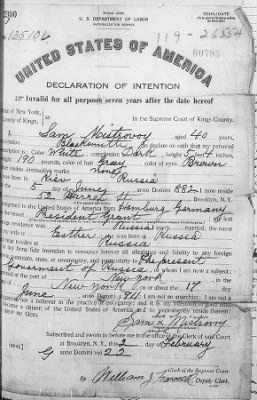 2380
U. S. DEPARTMENT OF LABOR
TRIPLICATE
No. 125106
119-26534
60795
UNITED STATES OF AMERICA
DECLARATION OF INTENTION
Invalid for all purposes seven years after the date hereof
State of New York,
County of Kings,
In the Supreme Court of Kings County.
I, Sam Mistrovoy, aged 40 years,
occupation Blacksmith, do declare on oath that my personal
description is: Color White, complexion Dark, height 5 feet inches,
weight 190 pounds, color of hair Gray, color of eyes Brown
other visible distinctive marks None
Kiev Russia
5 day of June, anno Domini 1882; I now reside
Brooklyn, N.Y.
United States of America from Hamburg Germany
President Grant
residence was Russia married
Esther was born at Russia
Russia
bona fide intention to renounce forever all allegiance and fidelity to any foreign
state, or sovereignty, and particularly to The present
Government of Russia, of whom I am now a subject;
New York
New York on or about the 17 day
June, anno Domini 1911; I am not an anarchist; I am not a
polygamist nor a believer in the practice of polygamy; and it is my intention in good faith
to become a citizen of the United States of America and to permanently reside therein:
HELP ME GOD.
Sam Mistrovoy
Subscribed and sworn to before me in the office of the Clerk of said Court
at Brooklyn, N.Y., this 2 day of February
anno Domini 1922
Clerk of the Supreme Court.
By William J. Deputy Clerk.